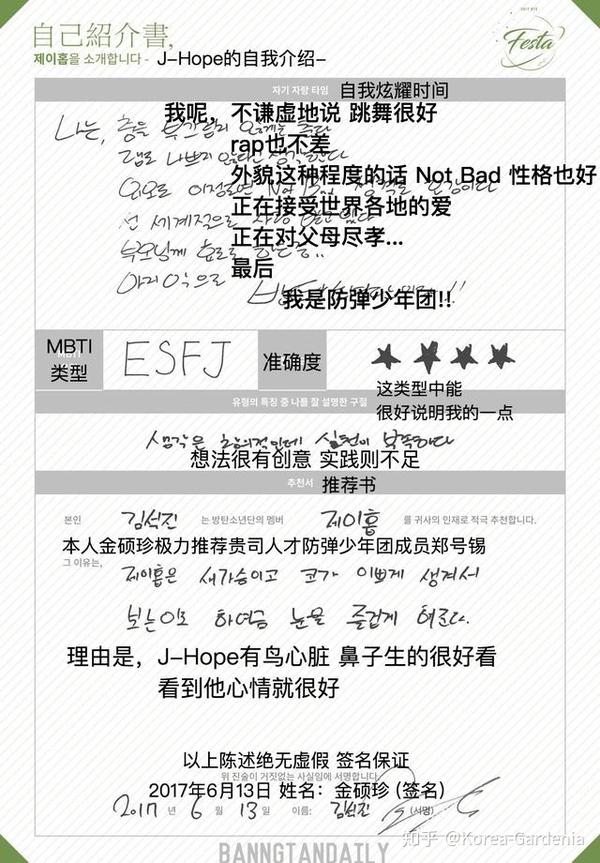 自己紹介書,
제이홉을 소개합니다 - J-Hope的自我介绍-
2017 BTS
Festa
자기 자랑 타임 自我炫耀时间
我呢, 不谦虚地说 跳舞很好
나는, 춤을
rap也不差
外貌这种程度的话 Not Bad 性格也好
正在接受世界各地的爱
正在对父母尽孝...
最后
마지막으로
我是防弹少年团!!
MBTI
类型
ESFJ
准确度
★ ★ ★ ★
这类型中能
유형의 특징 중 나를 잘 설명한 구절
很好说明我的一点
생각은 창의적인데 실천이 부족하다
想法很有创意 实践则不足
추천서 推荐书
본인 김석진 는 방탄소년단의 멤버 제이홉 를 귀사의 인재로 적극 추천합니다.
本人金硕珍极力推荐贵司人才防弹少年团成员郑号锡
그 이유는,
제이홉은 새가슴이고 코가 이쁘게 생겨서
보는이로 하여금 눈을 즐겁게 해준다.
理由是, J-Hope有鸟心脏 鼻子生的很好看
看到他心情就很好
以上陈述绝无虚假 签名保证
위 진술이 거짓없는 사실임에 서명합니다.
2017年6月13日 姓名: 金硕珍 (签名)
2017 년 6 월 13 일 이름: 김석진 (서명)
知乎 @Korea-Gardenia
BANNGTANDAILY